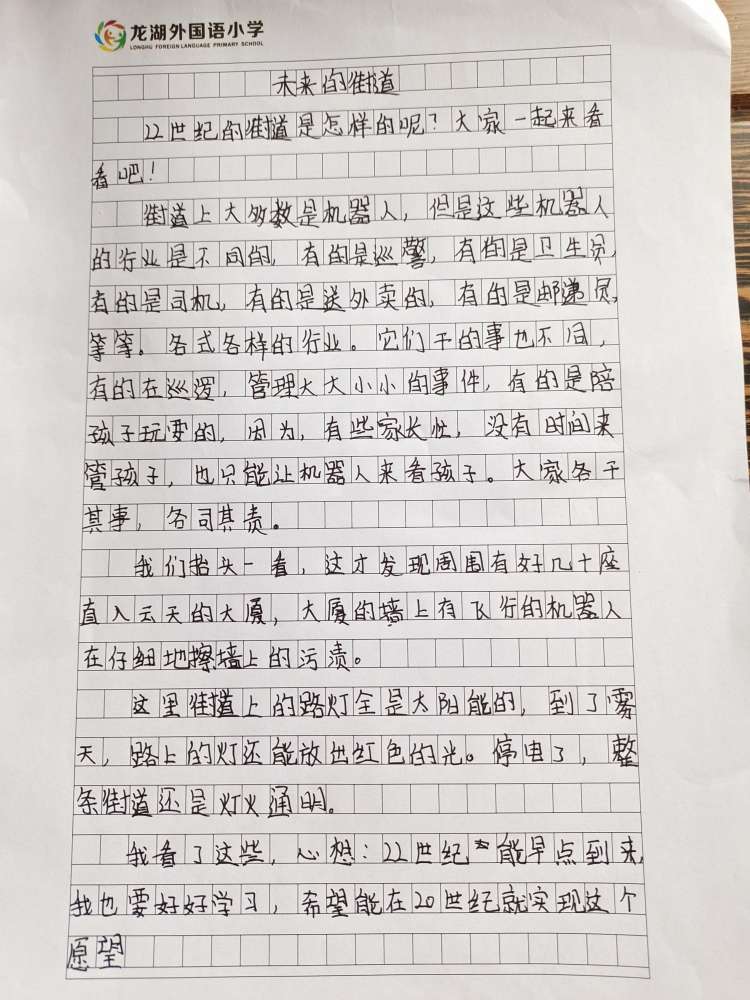 龙湖外国语小学
LONGHU FOREIGN LANGUAGE PRIMARY SCHOOL
未来的街道
22世纪的街道是怎样的呢？大家一起来看
看吧！
街道上大多数是机器人，但是这些机器人
的行业是不同的，有的是巡警，有的是卫生员，
有的是司机，有的是送外卖的，有的是邮递员，
等等。各式各样的行业。它们干的事也不同，
有的在巡逻，管理大大小小的事件，有的是陪
孩子玩耍的，因为，有些家长忙，没有时间来
管孩子，也只能让机器人来看孩子。大家各干
其事，各司其责。
我们抬头一看，这才发现周围有好几十座
直入云天的大厦，大厦的墙上有飞行的机器人
在仔细地擦墙上的污渍。
这里街道上的路灯全是太阳能的，到了雾
天，路上的灯还能放出红色的光。停电了，整
条街道还是灯火通明。
我看了这些，心想：22世纪能早点到来，
我也要好好学习，希望能在20世纪就实现这个
愿望